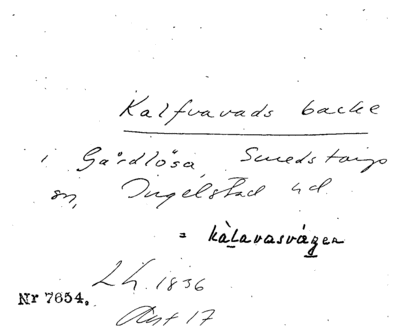 Kalfvavads backe
i Gårdlösa, Smedstorps
sn, Ingelstad hd
= kàlavasvägen
LH. 1836
Nr 7654.
Akt 17